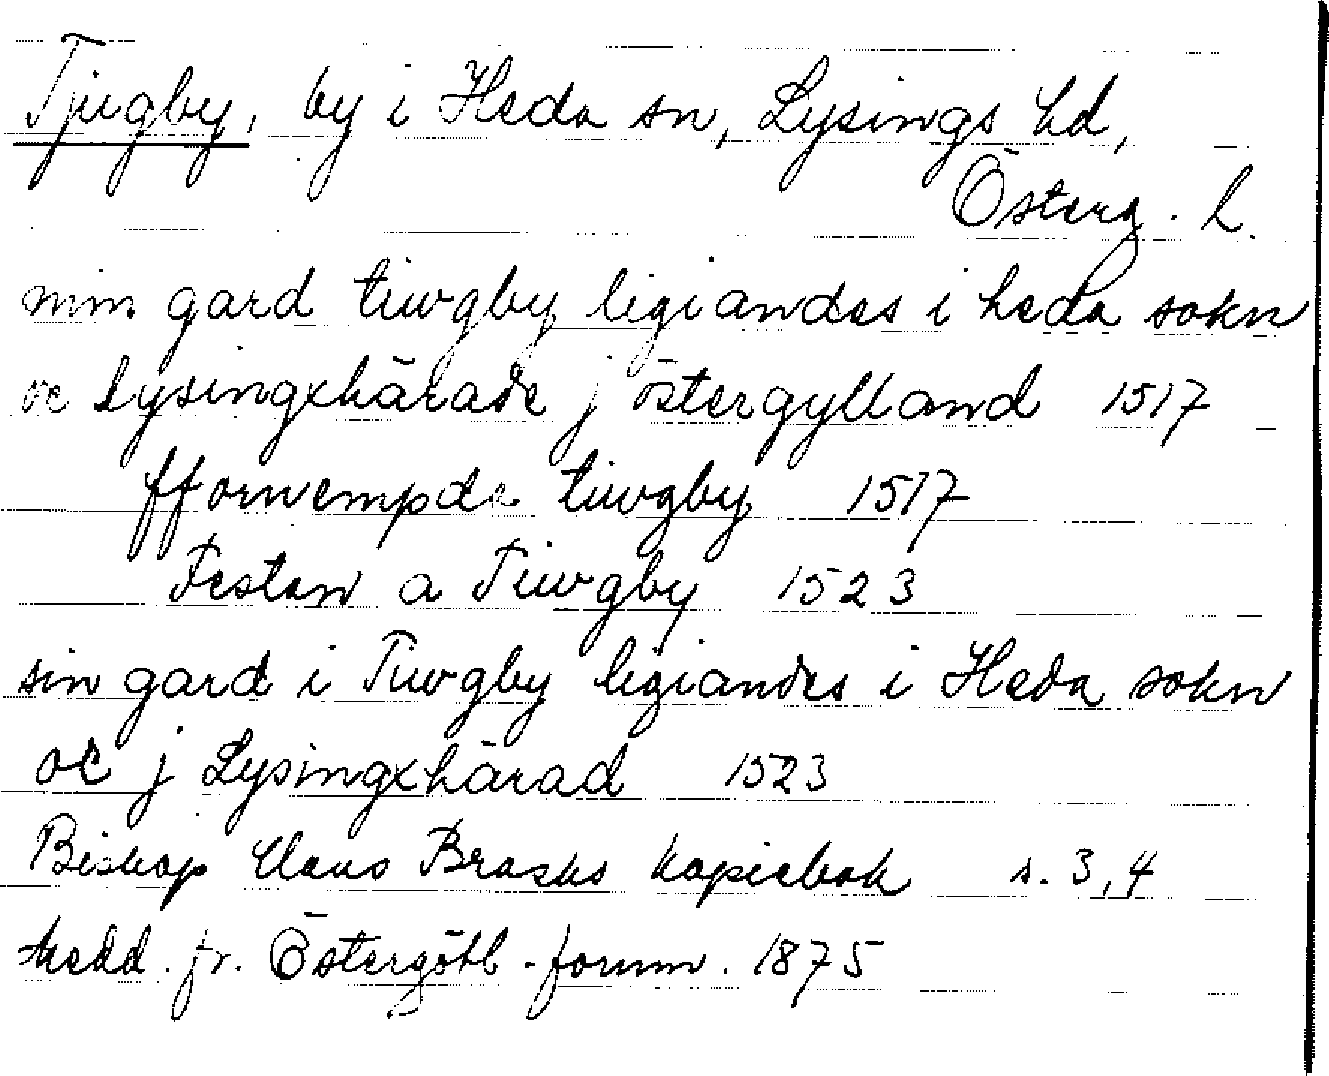 Tjugby, by i Heda sn, Lysings hd,
Österg. L.
min gard tiwgby ligiandes i heda sokn
oc Lysingxhärade j östergylland 1517
ffornempde tiwgby 1517
Festen a Tiwgby 1523
sin gard i Tiwgby ligiandes i Heda sokn
oc j Lysingxhärad 1523
Biskop Claus Brasks kopiebok s. 3,4
Medd. fr. Östergötl. fornm. 1875